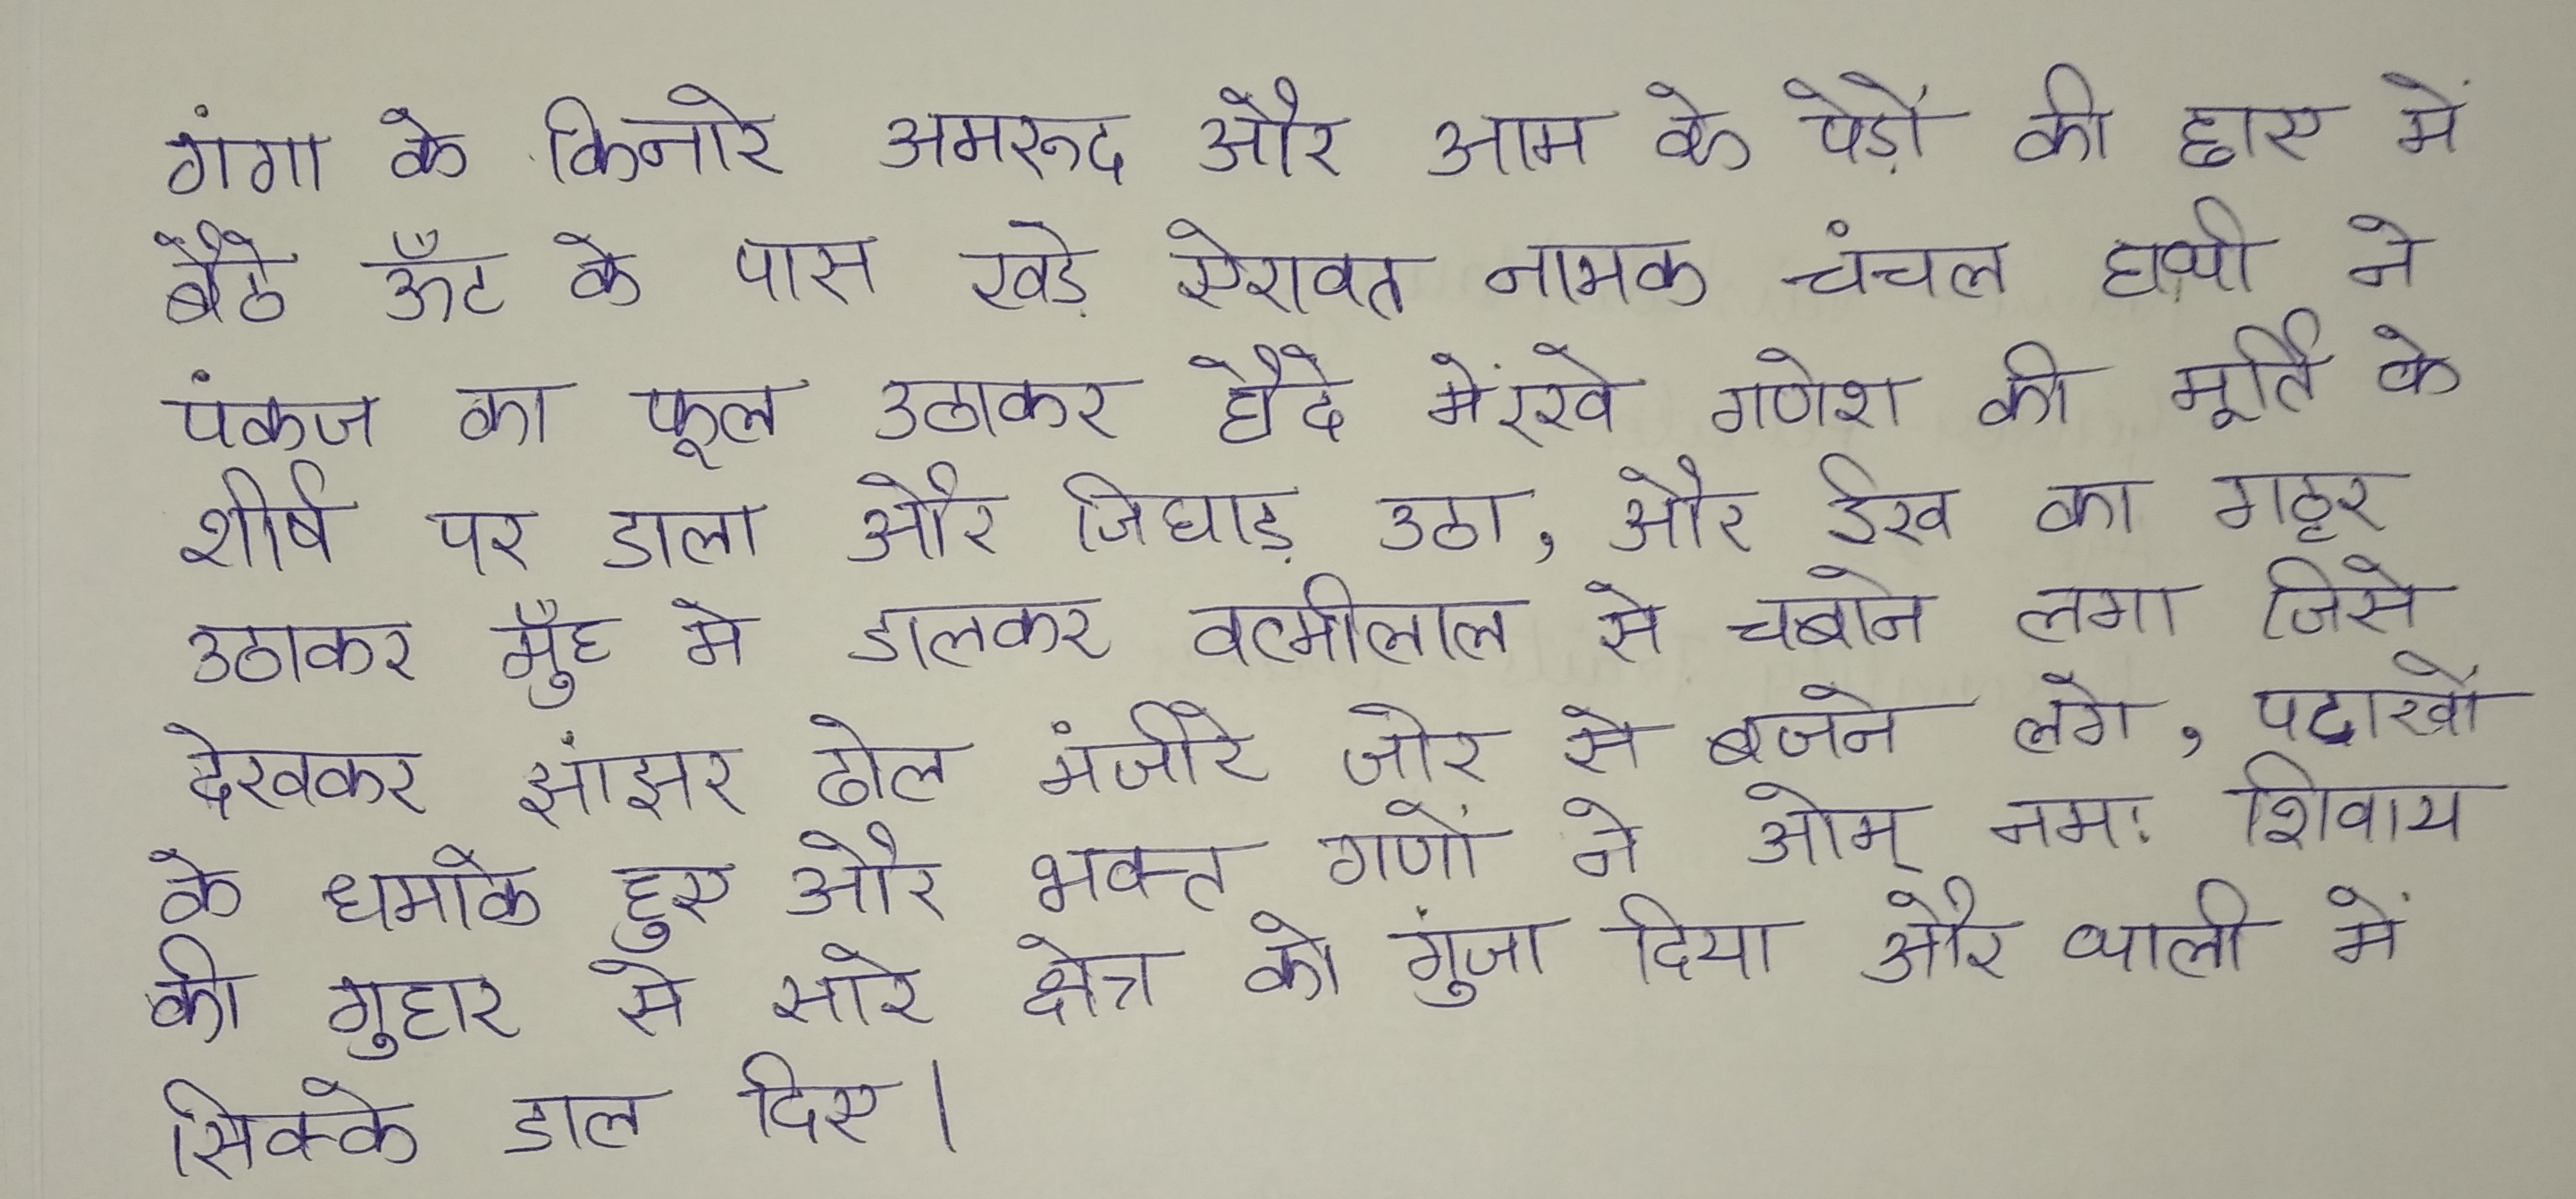 गंगा के किनारे अमरूद और आम के पेड़ों की छाए में
बैठे ऊँट के पास खड़े ऐरावत नामक चंचल हाथी ने
पंकज का फूल उठाकर हौदे में रखे गणेश की मूर्ति के
शीर्ष पर डाला और जिघाड़ उठा, और ईख का गट्ठर
उठाकर मुँह मे डालकर वत्मीलाल से चबाने लगा जिसे
देखकर झांझर ढोल मंजीरे जोर से बजने लगे, पटाखों
के धमाके हुए और भक्त गणों ने ओम् नमः शिवाय
की गुहार से सारे क्षेत्र को गुंजा दिया और थाली में
सिक्के डाल दिए।